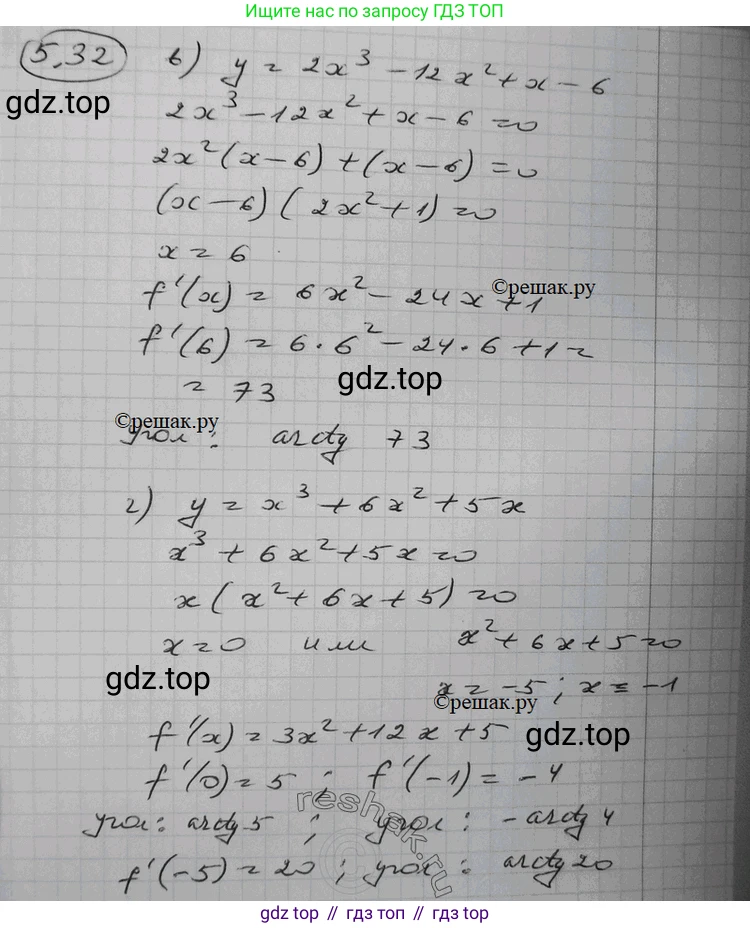 Ищите нас по запросу ГДЗ ТОП
5.32 в) y = 2x³ - 12x² + x - 6
gdz.top
2x³ - 12x² + x - 6 = 0
2x²(x - 6) + (x - 6) = 0
(x - 6)(2x² + 1) = 0
x = 6
©решак.ру
f'(x) = 6x² - 24x + 1
f'(6) = 6·6² - 24·6 + 1 =
gdz.top
= 73
©решак.ру
угол: arctg 73
г) y = x³ + 6x² + 5x
x³ + 6x² + 5x = 0
x(x² + 6x + 5) = 0
x = 0 или x² + 6x + 5 = 0
gdz.top
x = -5; x = -1
©решак.ру
f'(x) = 3x² + 12x + 5
gdz.top
f'(0) = 5; f'(-1) = -4
reshak.ru
угол: arctg 5; угол: -arctg 4
f'(-5) = 20; угол: arctg 20
gdz.top // гдз топ // gdz.top